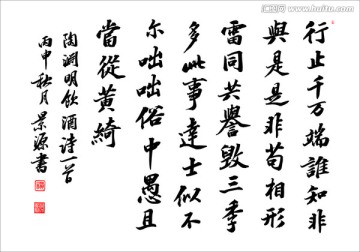 行止千万端誰知非
與是是非苟相形
雷同共譽毀三季
多此事達士似不
尔咄咄俗中愚且
當從黃綺
陶淵明飲酒诗一首
丙申秋月景源書
汇图网
www.huitu.com